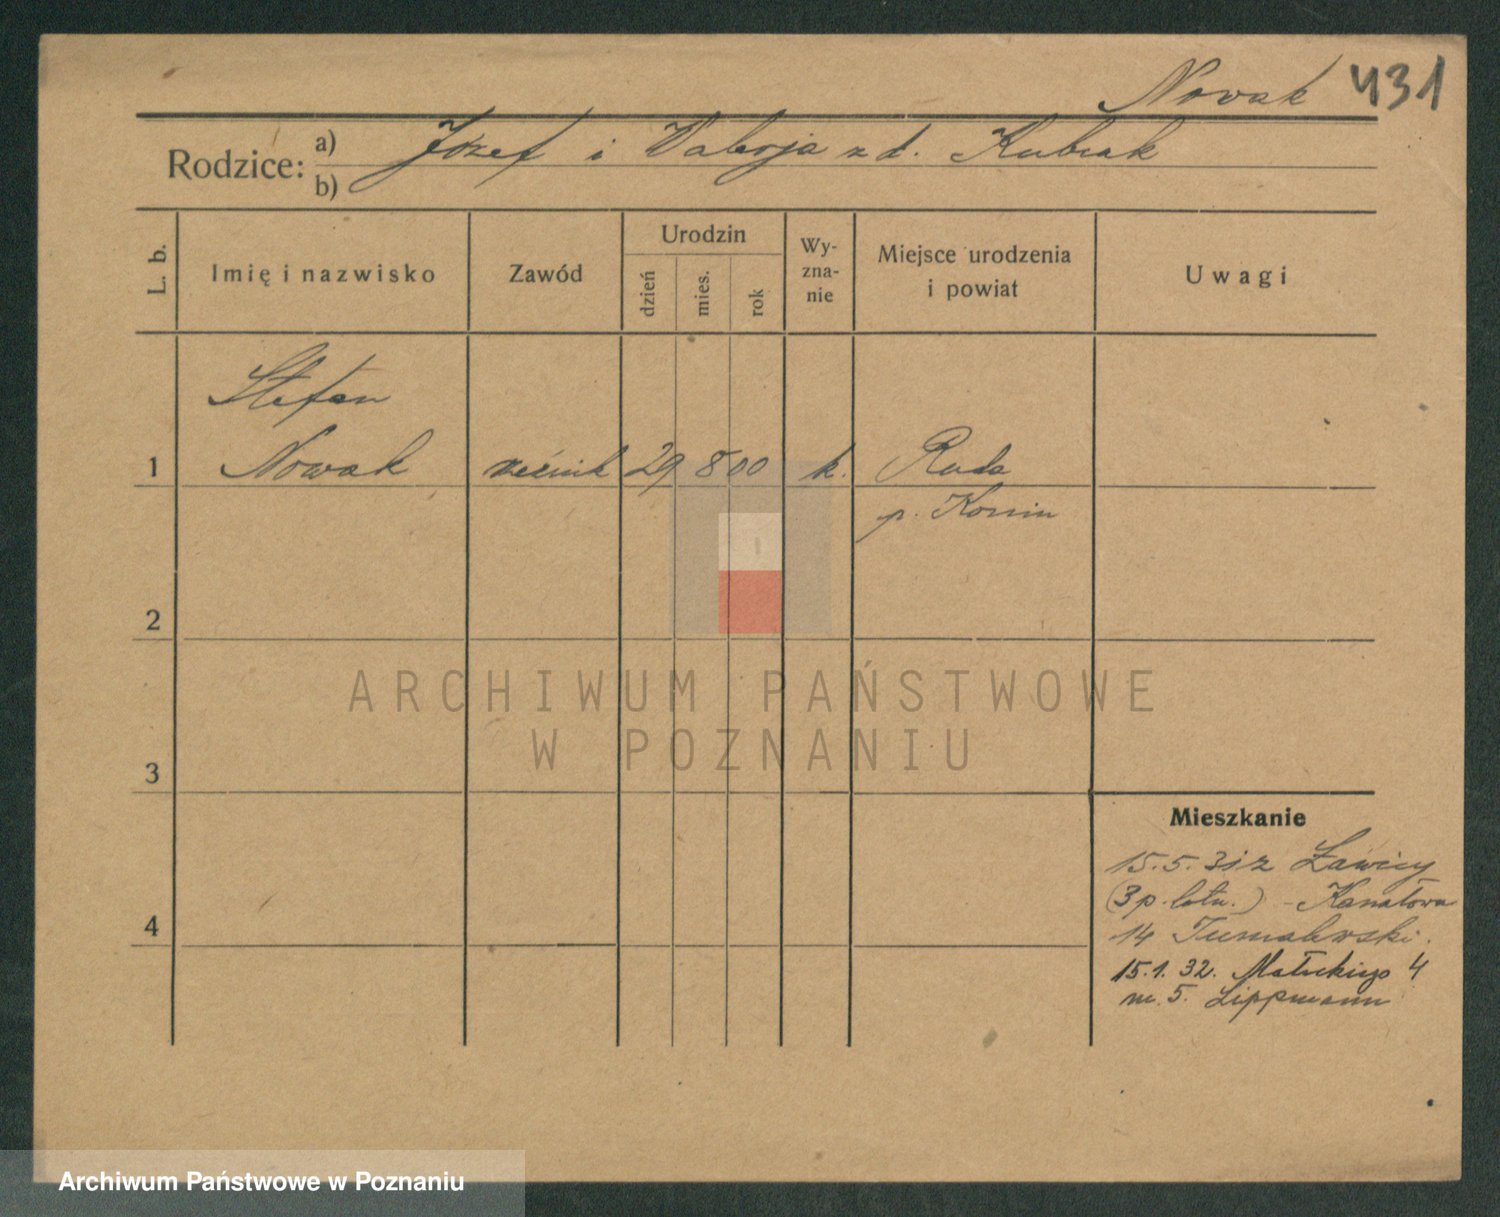 Nowak 431
Rodzice: a) Józef i Valerja z d. Kubiak
b)
L. b.
Imię i nazwisko
Zawód
Urodzin
dzień
mies.
rok
Wy-
zna-
nie
Miejsce urodzenia
i powiat
Uwagi
Stefan
1 Nowak 29 8 00 k. Ruda
p. Konin
2
3
4
ARCHIWUM PAŃSTWOWE
W POZNANIU
Mieszkanie
15.5.31 z Ławicy
(3 p. lotn.) - Kanałowa
14
15.1.32. Małeckiego 4
m. 5. Lippmann
Archiwum Państwowe w Poznaniu